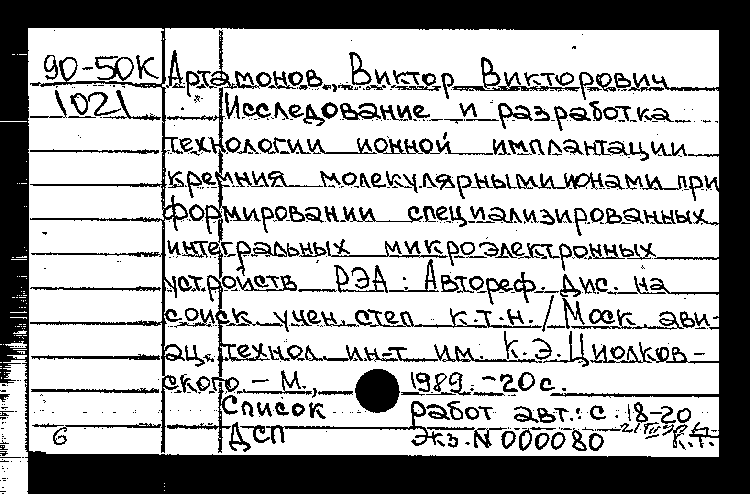 90-50К Артамонов, Виктор Викторович
1021 Исследование и разработка
технологии ионной имплантации
кремния молекулярными ионами при
формировании специализированных
интегральных микроэлектронных
устройств РЭА : Автореф. дис. на
соиск. учен. степ к.т.н. / Моск. ави-
ац. технол. ин-т им. К.Э.Циолков-
ского. - М., 1989. -20 с.
Список работ авт.: с. 18-20
6 ДСП Экз. N 000080 К.Т.